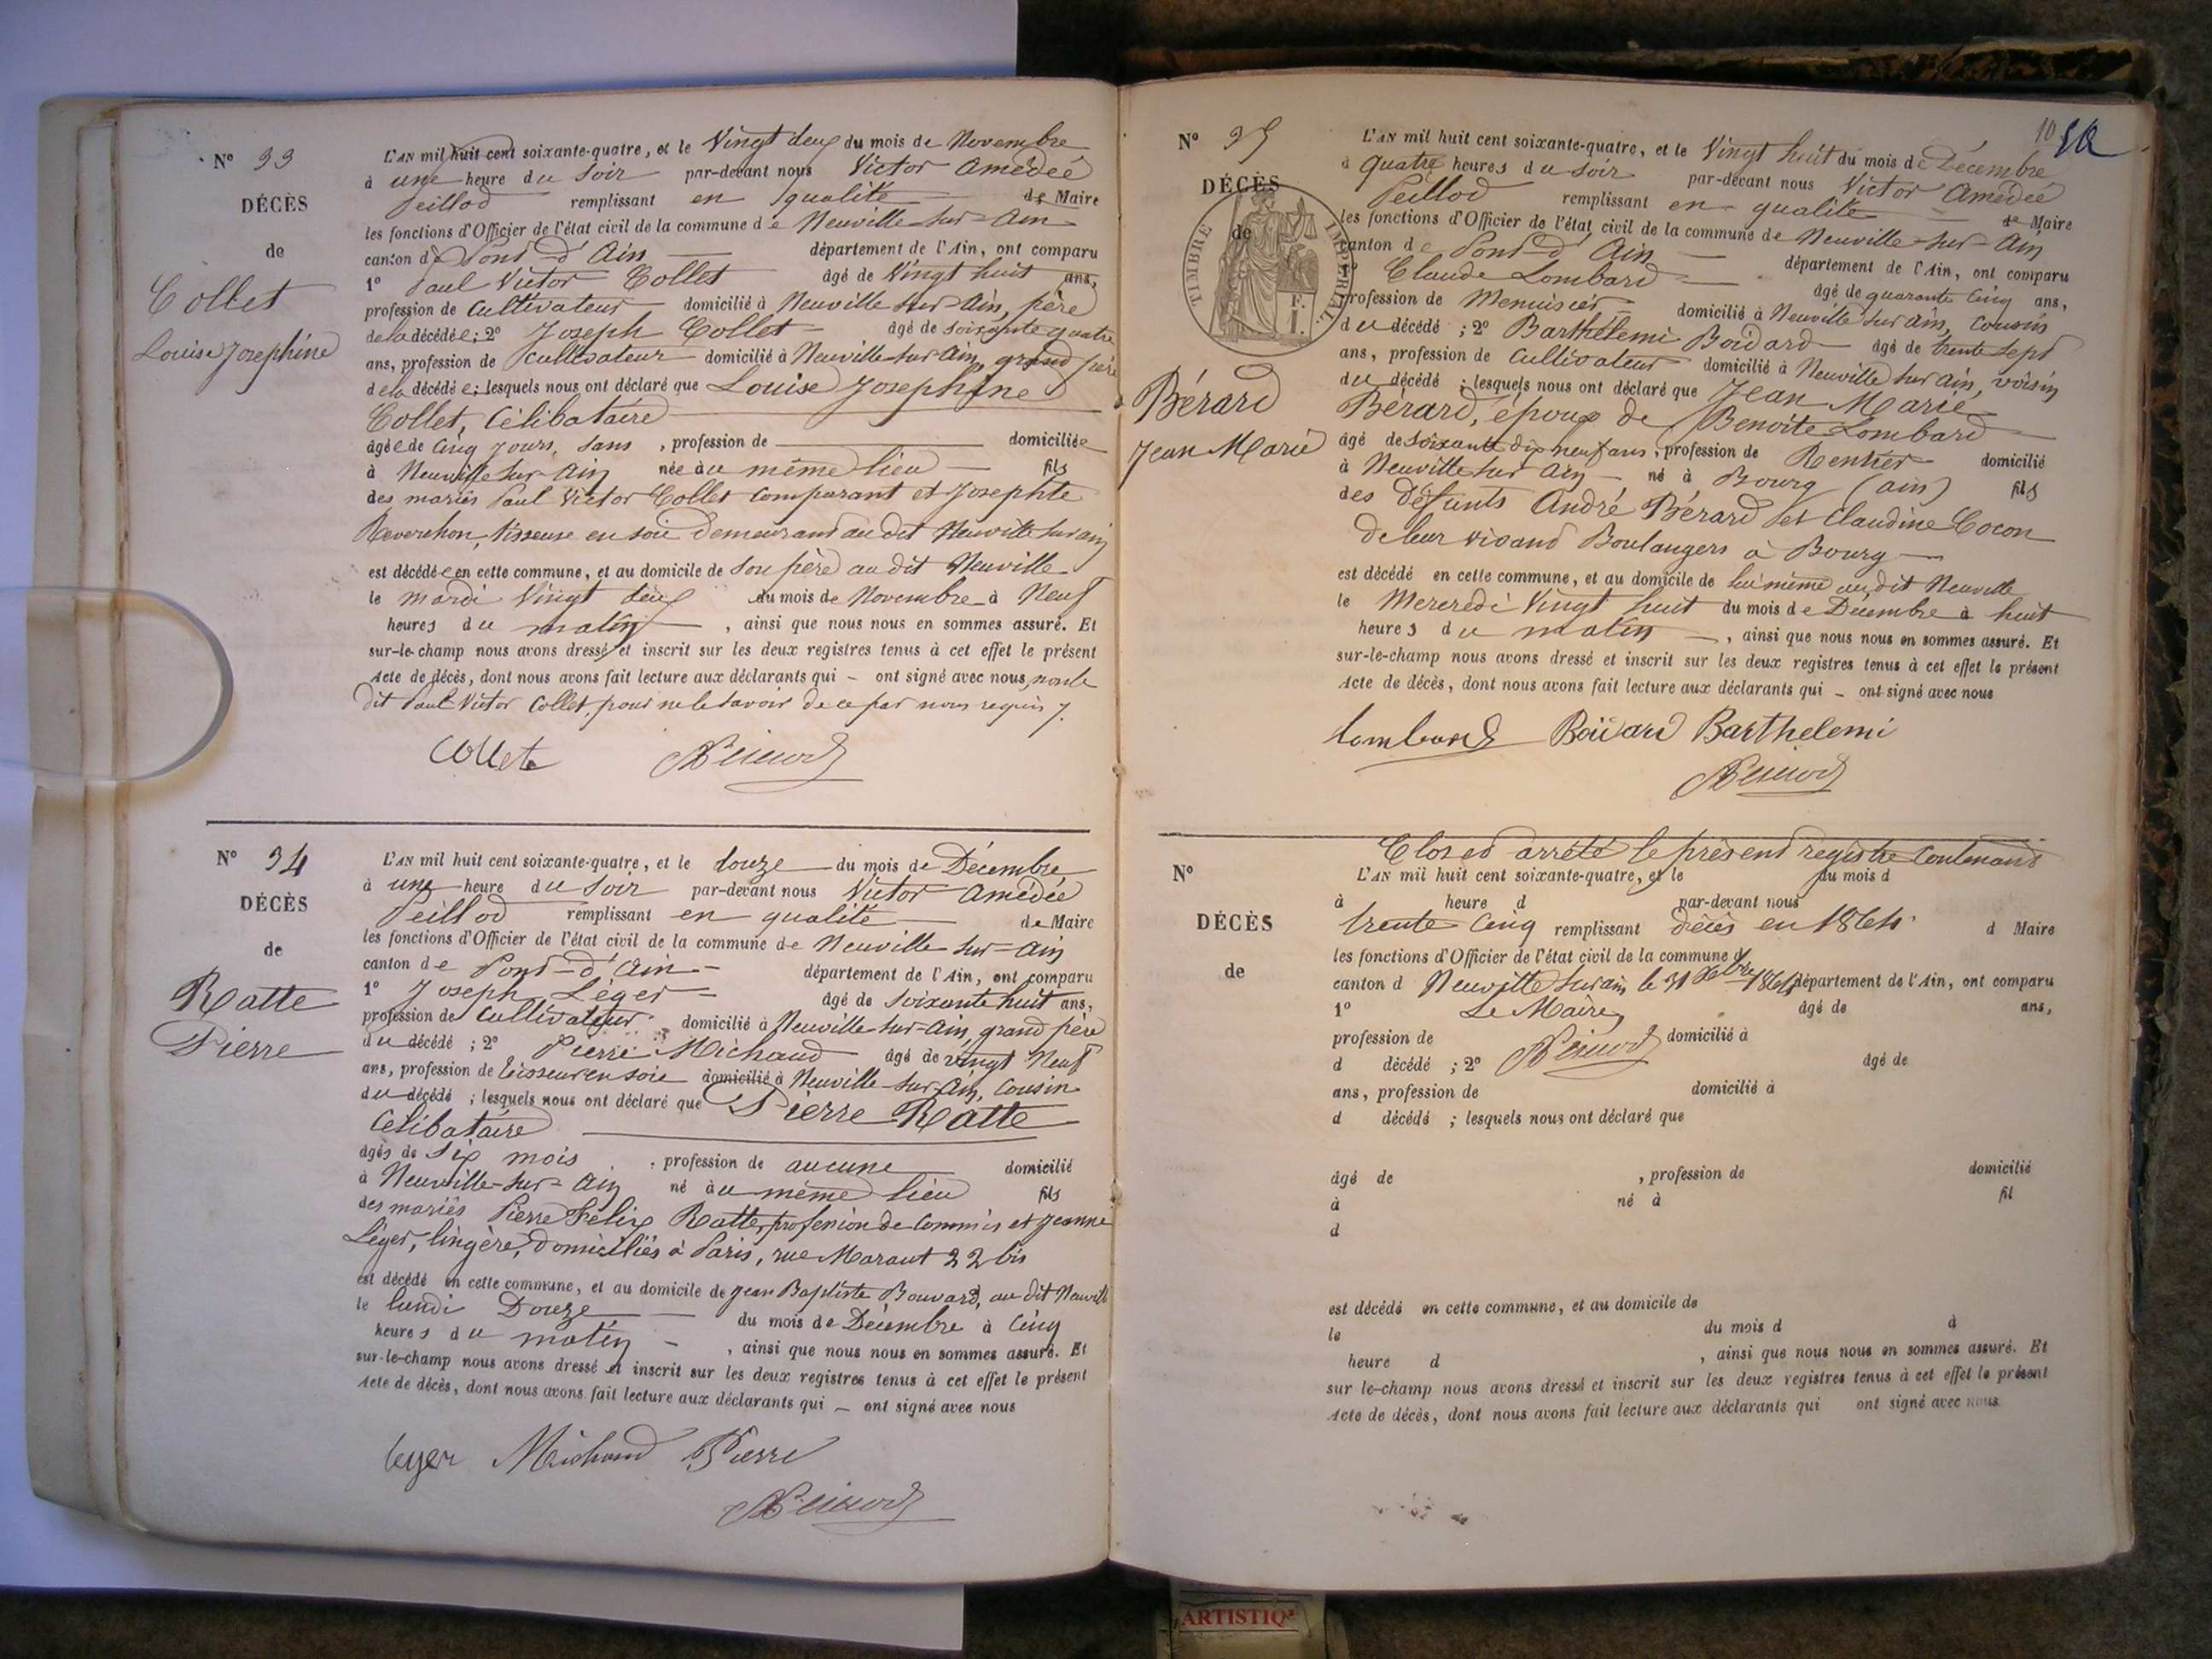 N° 33
DÉCÈS
de
Collet
Louise Josephine
L'AN mil huit cent soixante-quatre, et le Vingt deux du mois de Novembre
à une heure du Soir par-devant nous Victor Amédée
Peillod remplissant en qualité de Maire
les fonctions d'Officier de l'état civil de la commune de Neuville-sur-Ain
canton de Pont-d'Ain département de l'Ain, ont comparu
1° Paul Victor Collet âgé de Vingt huit ans,
profession de Cultivateur domicilié à Neuville sur Ain, père
de la décédée; 2° Joseph Collet âgé de soixante quatre
ans, profession de Cultivateur domicilié à Neuville-sur-Ain, grand père
de la décédée; lesquels nous ont déclaré que Louise Josephine
Collet, Célibataire
âgée de Cinq jours, sans , profession de domiciliée
à Neuville sur Ain née au même lieu fils
des mariés Paul Victor Collet comparant et Josephte
Reverchon, tisseuse en soie demeurant au dit Neuville sur ain
est décédée en cette commune, et au domicile de Son père au dit Neuville
le mardi Vingt deux du mois de Novembre à Neuf
heures du matin , ainsi que nous nous en sommes assuré. Et
sur-le-champ nous avons dressé et inscrit sur les deux registres tenus à cet effet le présent
Acte de décès, dont nous avons fait lecture aux déclarants qui ont signé avec nous, non le
dit Paul Victor Collet, pour ne le savoir de ce par nous requis.
Collet Peillod
N° 34
DÉCÈS
de
Ratte
Pierre
L'AN mil huit cent soixante-quatre, et le douze du mois de Décembre
à une heure du Soir par-devant nous Victor Amédée
Peillod remplissant en qualité de Maire
les fonctions d'Officier de l'état civil de la commune de Neuville sur-Ain
canton de Pont-d'Ain département de l'Ain, ont comparu
1° Joseph Léger âgé de Soixante huit ans,
profession de Cultivateur domicilié à Neuville-sur-Ain, grand père
du décédé ; 2° Pierre Michaud âgé de vingt Neuf
ans, profession de tisseur en soie domicilié à Neuville-sur-Ain, Cousin
du décédé ; lesquels nous ont déclaré que Pierre Ratte
Célibataire
âgés de Six mois , profession de aucune domicilié
à Neuville-sur-Ain né au même lieu fils
des mariés Pierre Félix Ratte, profession de Commis et Jeanne
Léger, lingère, domiciliés à Paris, rue Maraut 22 bis
est décédé en cette commune, et au domicile de Jean Baptiste Bouvard, au dit Neuville
le lundi Douze du mois de Décembre à Cinq
heures du matin , ainsi que nous nous en sommes assuré. Et
sur-le-champ nous avons dressé et inscrit sur les deux registres tenus à cet effet le présent
Acte de décès, dont nous avons fait lecture aux déclarants qui ont signé avec nous
leger Michaud Pierre
Peillod
10
N° 35
DÉCÈS
de
TIMBRE IMPÉRIAL
Bérard
Jean Marie
L'AN mil huit cent soixante-quatre, et le Vingt huit du mois de Décembre
à quatre heures du Soir par-devant nous Victor Amédée
Peillod remplissant en qualité de Maire
les fonctions d'Officier de l'état civil de la commune de Neuville-sur-Ain
canton de Pont-d'Ain département de l'Ain, ont comparu
Claude Lombard âgé de quarante Cinq ans,
profession de Menuisier domicilié à Neuville sur ain, Cousin
du décédé ; 2° Barthélemi Boidard âgé de trente sept
ans, profession de Cultivateur domicilié à Neuville sur ain, voisin
du décédé ; lesquels nous ont déclaré que Jean Marie
Bérard, époux de Benoite Lombard
âgé de soixante dix neuf ans, profession de Rentier domicilié
à Neuville sur Ain né à Bourg (ain) fils
des défunts André Bérard et Claudine Cocon
de leur vivant Boulangers à Bourg
est décédé en cette commune, et au domicile de lui même au dit Neuville
le Mercredi Vingt huit du mois de Décembre à huit
heures du matin , ainsi que nous nous en sommes assuré. Et
sur-le-champ nous avons dressé et inscrit sur les deux registres tenus à cet effet le présent
Acte de décès, dont nous avons fait lecture aux déclarants qui ont signé avec nous
Lombard Boidard Barthelemi
Peillod
Clos et arrêté le présent registre contenant
N°
DÉCÈS
de
L'AN mil huit cent soixante-quatre, et le du mois d
à heure d par-devant nous
trente Cinq remplissant décès en 1864. d Maire
les fonctions d'Officier de l'état civil de la commune d
canton d Neuville sur ain, le 31 Xbre 1864 département de l'Ain, ont comparu
1° Le Maire, âgé de ans,
profession de domicilié à
Peillod
d décédé ; 2° âgé de
ans, profession de domicilié à
d décédé ; lesquels nous ont déclaré que
âgé de , profession de domicilié
à né à fil
d
est décédé en cette commune, et au domicile de
le du mois d à
heure d , ainsi que nous nous en sommes assuré. Et
sur le-champ nous avons dressé et inscrit sur les deux registres tenus à cet effet le présent
Acte de décès, dont nous avons fait lecture aux déclarants qui ont signé avec nous
ARTISTIQ